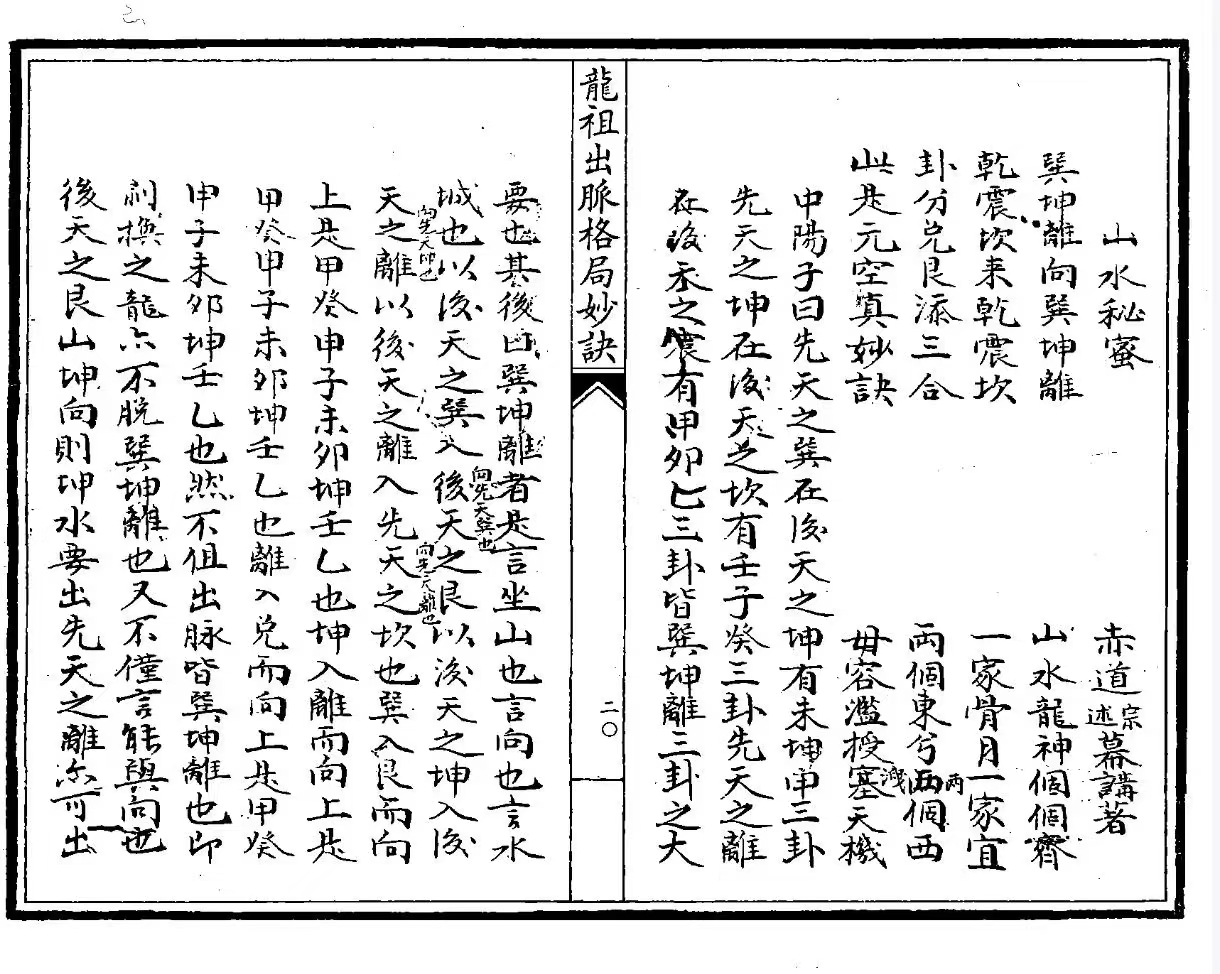 山水秘蜜　赤道述宗幕講著
巽坤離向巽坤離　山水龍神個個齊
乾震坎来乾震坎　一家骨月一家宜
卦分兑艮添三合　兩個東兮兩個西
此是元空真妙訣　毋容濫授塞天機
中陽子曰先天之巽在後天之坤有未坤申三卦
先天之坤在後天之坎有壬子癸三卦先天之離
在後天之震有甲卯乙三卦皆巽坤離三卦之大
龍祖出脈格局妙訣
二〇
要也其後曰巽坤離者是言坐山也言向也言水
城也以後天之巽入後天之艮向先天巽也以後天之坤入後
天之離向先天卯也以後天之離入先天之坎也向先天離也巽入艮而向
上是甲癸申子未卯坤壬乙也坤入離而向上是
甲癸甲子未卯坤壬乙也離入兑而向上是甲癸
申子未卯坤壬乙也然不但出脉皆巽坤離也即
剥換之龍亦不脱巽坤離也又不僅言龍與向也
後天之艮山坤向則坤水要出先天之離亦可出